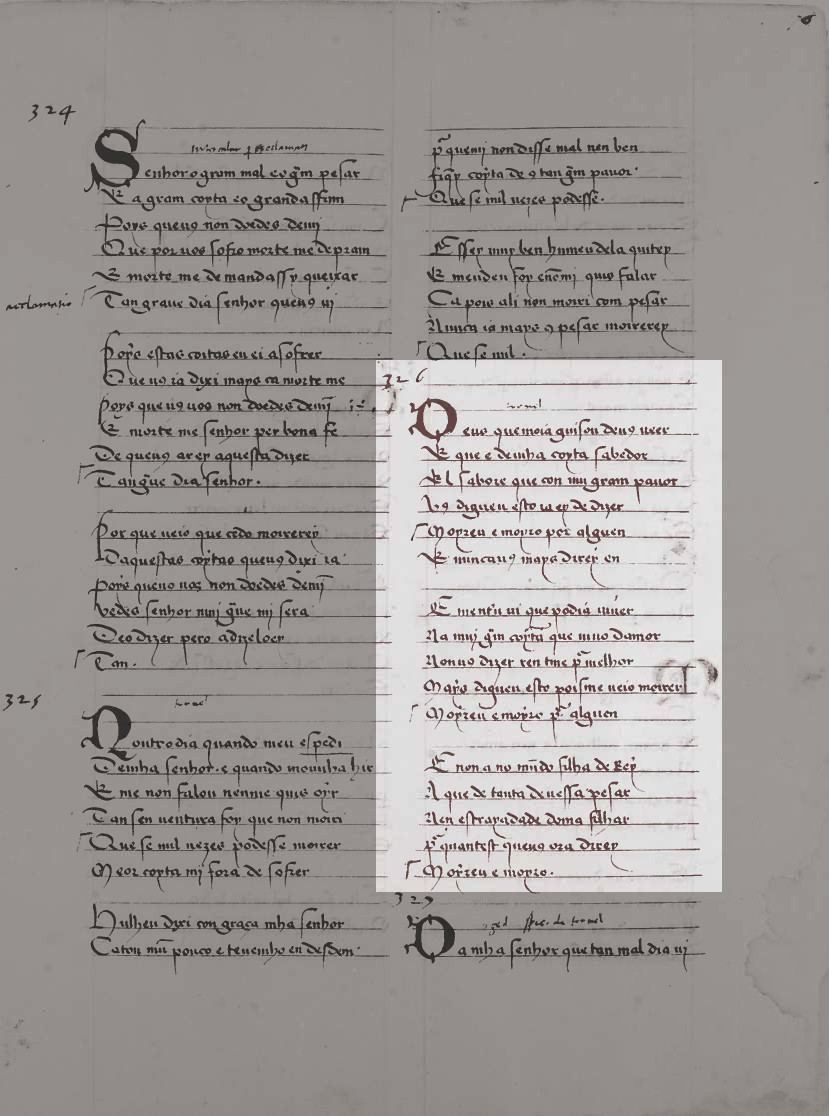 324
Senhor o gram mal e o gm̃ pesar
E a gram coyta e o grand affam
Poys queuꝯ non doedes demj
Que por uos sofro morte me de pram
E morte me de mandassy queixar
Tan graue dia senhor queuꝯ uj
Poys estas coitas eu ei a sofrer
Que uꝯ ia dixi mays ca morte me
Poys que uꝯ uos non doedes demj̃
E morte me senhor per bona fe
De queuꝯ ar ey aquesta dizer
Tan gũe dia senhor.
Por que ueio que cedo moirerey
Daquestas coytas queuꝯ dixi ia
Poys queuꝯ uos non doedes demj̃
Vedes senhor muj gũe mj sera
Deo dizer pero adizeloei
Tan.
325
tornel
Noutro dia quando meu espedi
Demha senhor. e quando mouuiha hir
E me non falou nenme quis oyr
Tan sen uentura foy que non moiri
Que se mil uezes podesse moirer
Meor coyta mj fora de sofrer
Hulheu dixi con graça mha senhor
Catou mũ pouco e teuemho en desdem
p̃ quemj non disse mal nen ben
fiq̃y coytade ꝯ tan gm̃ pauor
Que se mil uezes podesse.
E ssey muy ben humeu dela quitey
E meuden foy
Ca poio ali non moiri com pesar
Nunca ia mays ꝯ pesar moirerey
Que se mil.
326
tornel
Deuo que moia guisou deuꝯ ueer
E que e deinha coyta sabedor
El sabore que con muj gram pauor
Vꝯ digueu esto ia ey de dizer
Moyreu e moyro por alguen
E nuncauꝯ mays direy en
E mentru ui que podia uiuer
Na muj gm̃ coyta que uiuo damor
Nonuꝯ dizer ren tiue p̃ melhor
Mays digueu esto poisme ueio moirer
Moyreu e moyro p̃ alguen
E non a no mũdo filha de Rey
A que de tanta deuessa pesar
Nen estraydade doma filhar
p̃ quantest queuꝯ ora direy
Moyreu e moyro.
327
Da mha senhor que tan mal dia uj